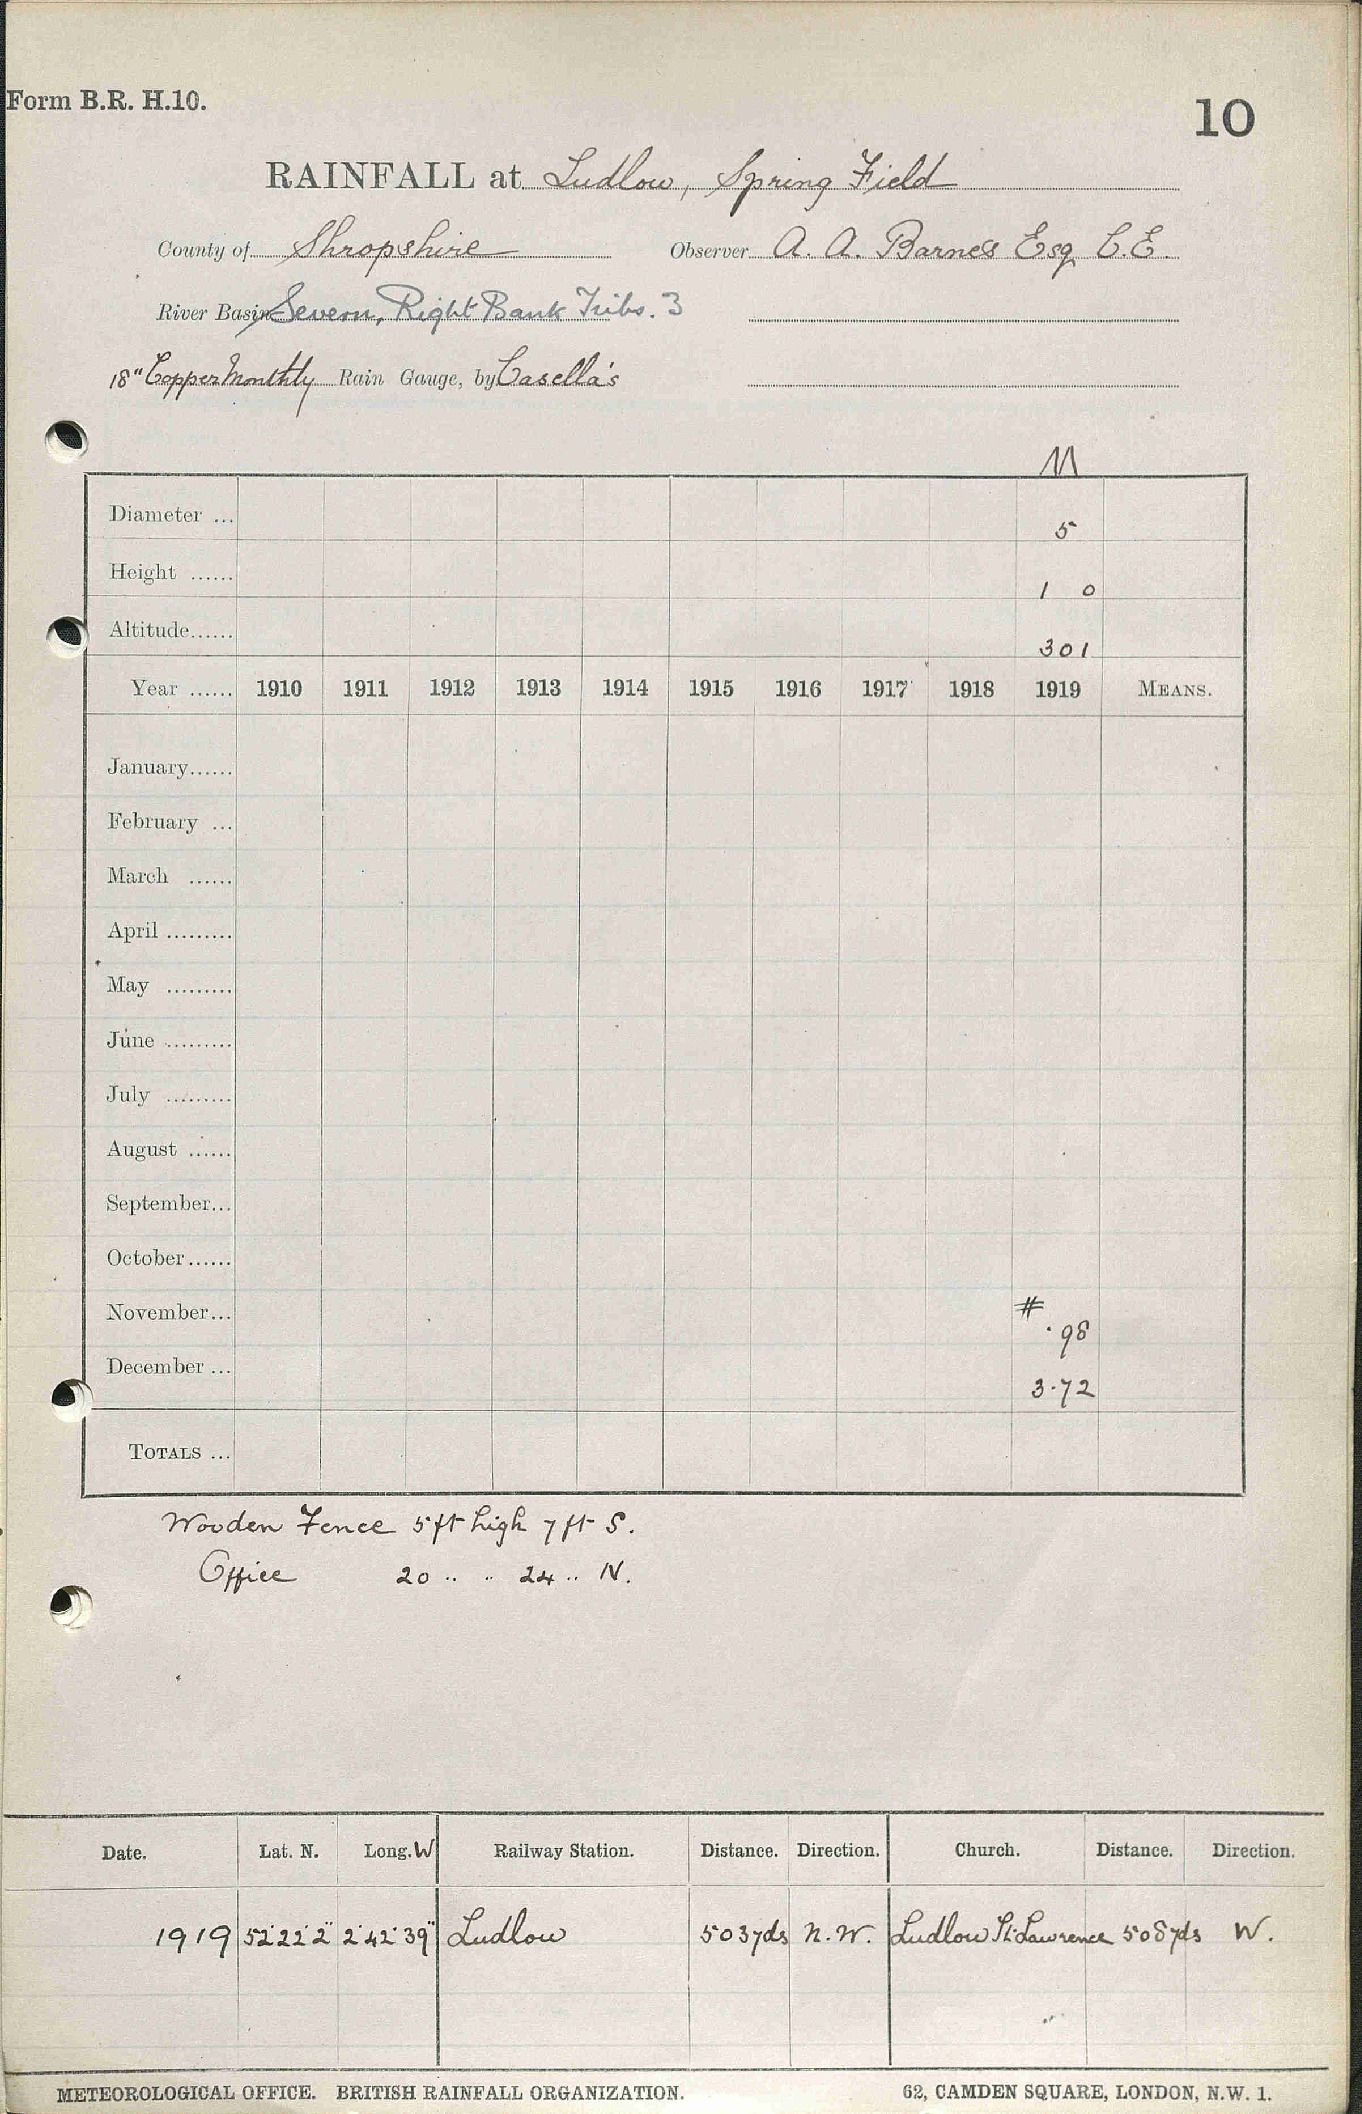 Form B.R. H.10.
10
RAINFALL at Ludlow, Spring Field
County of Shropshire Observer A. A. Barnes Esq C.E.
River Basin Severn, Right Bank Tribs. 3
18" Copper Monthly Rain Gauge, by Casella's
M
Diameter ... 5
Height ...... 1 0
Altitude...... 301
Year ...... 1910 1911 1912 1913 1914 1915 1916 1917 1918 1919 MEANS.
January......
February ...
March ......
April .........
May .........
June .........
July .........
August ......
September...
October......
November... # .98
December ... 3.72
TOTALS ...
Wooden Fence 5 ft high 7 ft S.
Office 20 " " 24 " N.
Date. Lat. N. Long. W Railway Station. Distance. Direction. Church. Distance. Direction.
1919 52° 22' 2" 2° 42' 39" Ludlow 503 yds N.W. Ludlow St. Lawrence 508 yds W.
METEOROLOGICAL OFFICE. BRITISH RAINFALL ORGANIZATION. 62, CAMDEN SQUARE, LONDON, N.W. 1.